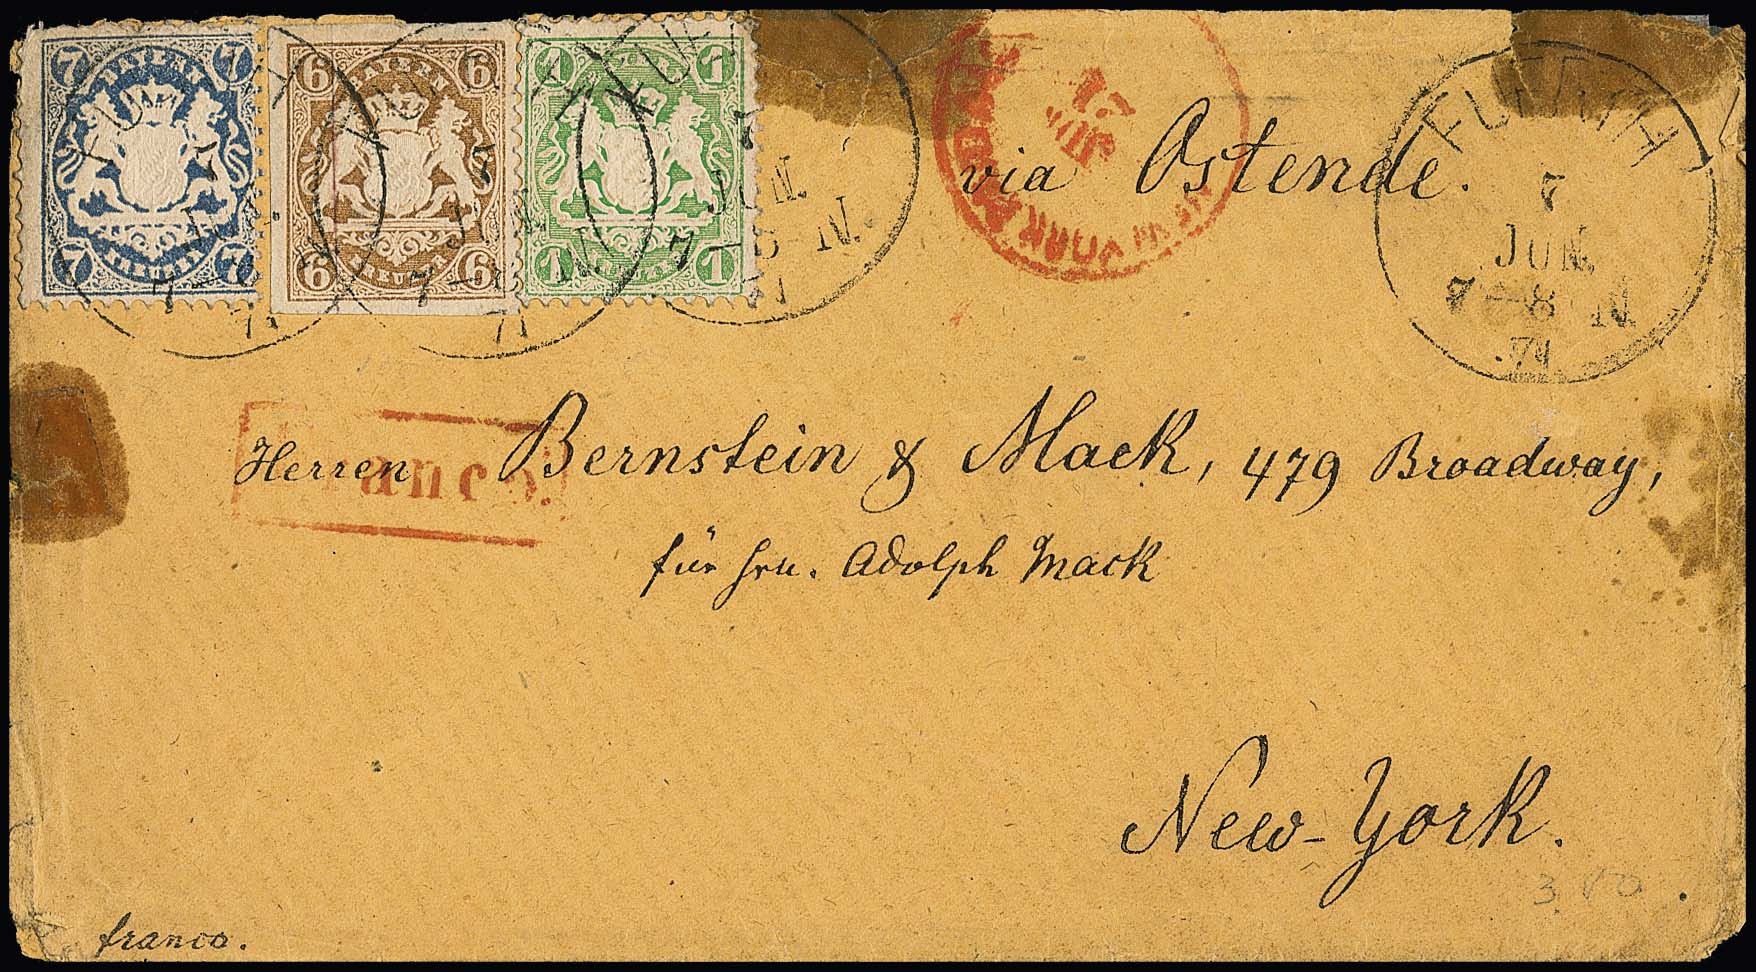 7 BAYERN 7
7 KREUZER 7
6 BAYERN 6
6 KREUZER 6
1 BAYERN 1
1 KREUZER 1
7
JUN.
7
71
71
via Ostende.
NEW YORK PAID ALL
JUN
21
FUERTH
7
JUN.
7-8 N
.71.
Franco.
Herren Bernstein & Mack, 479 Broadway,
für Hrn. Adolph Mack
New-York.
franco.